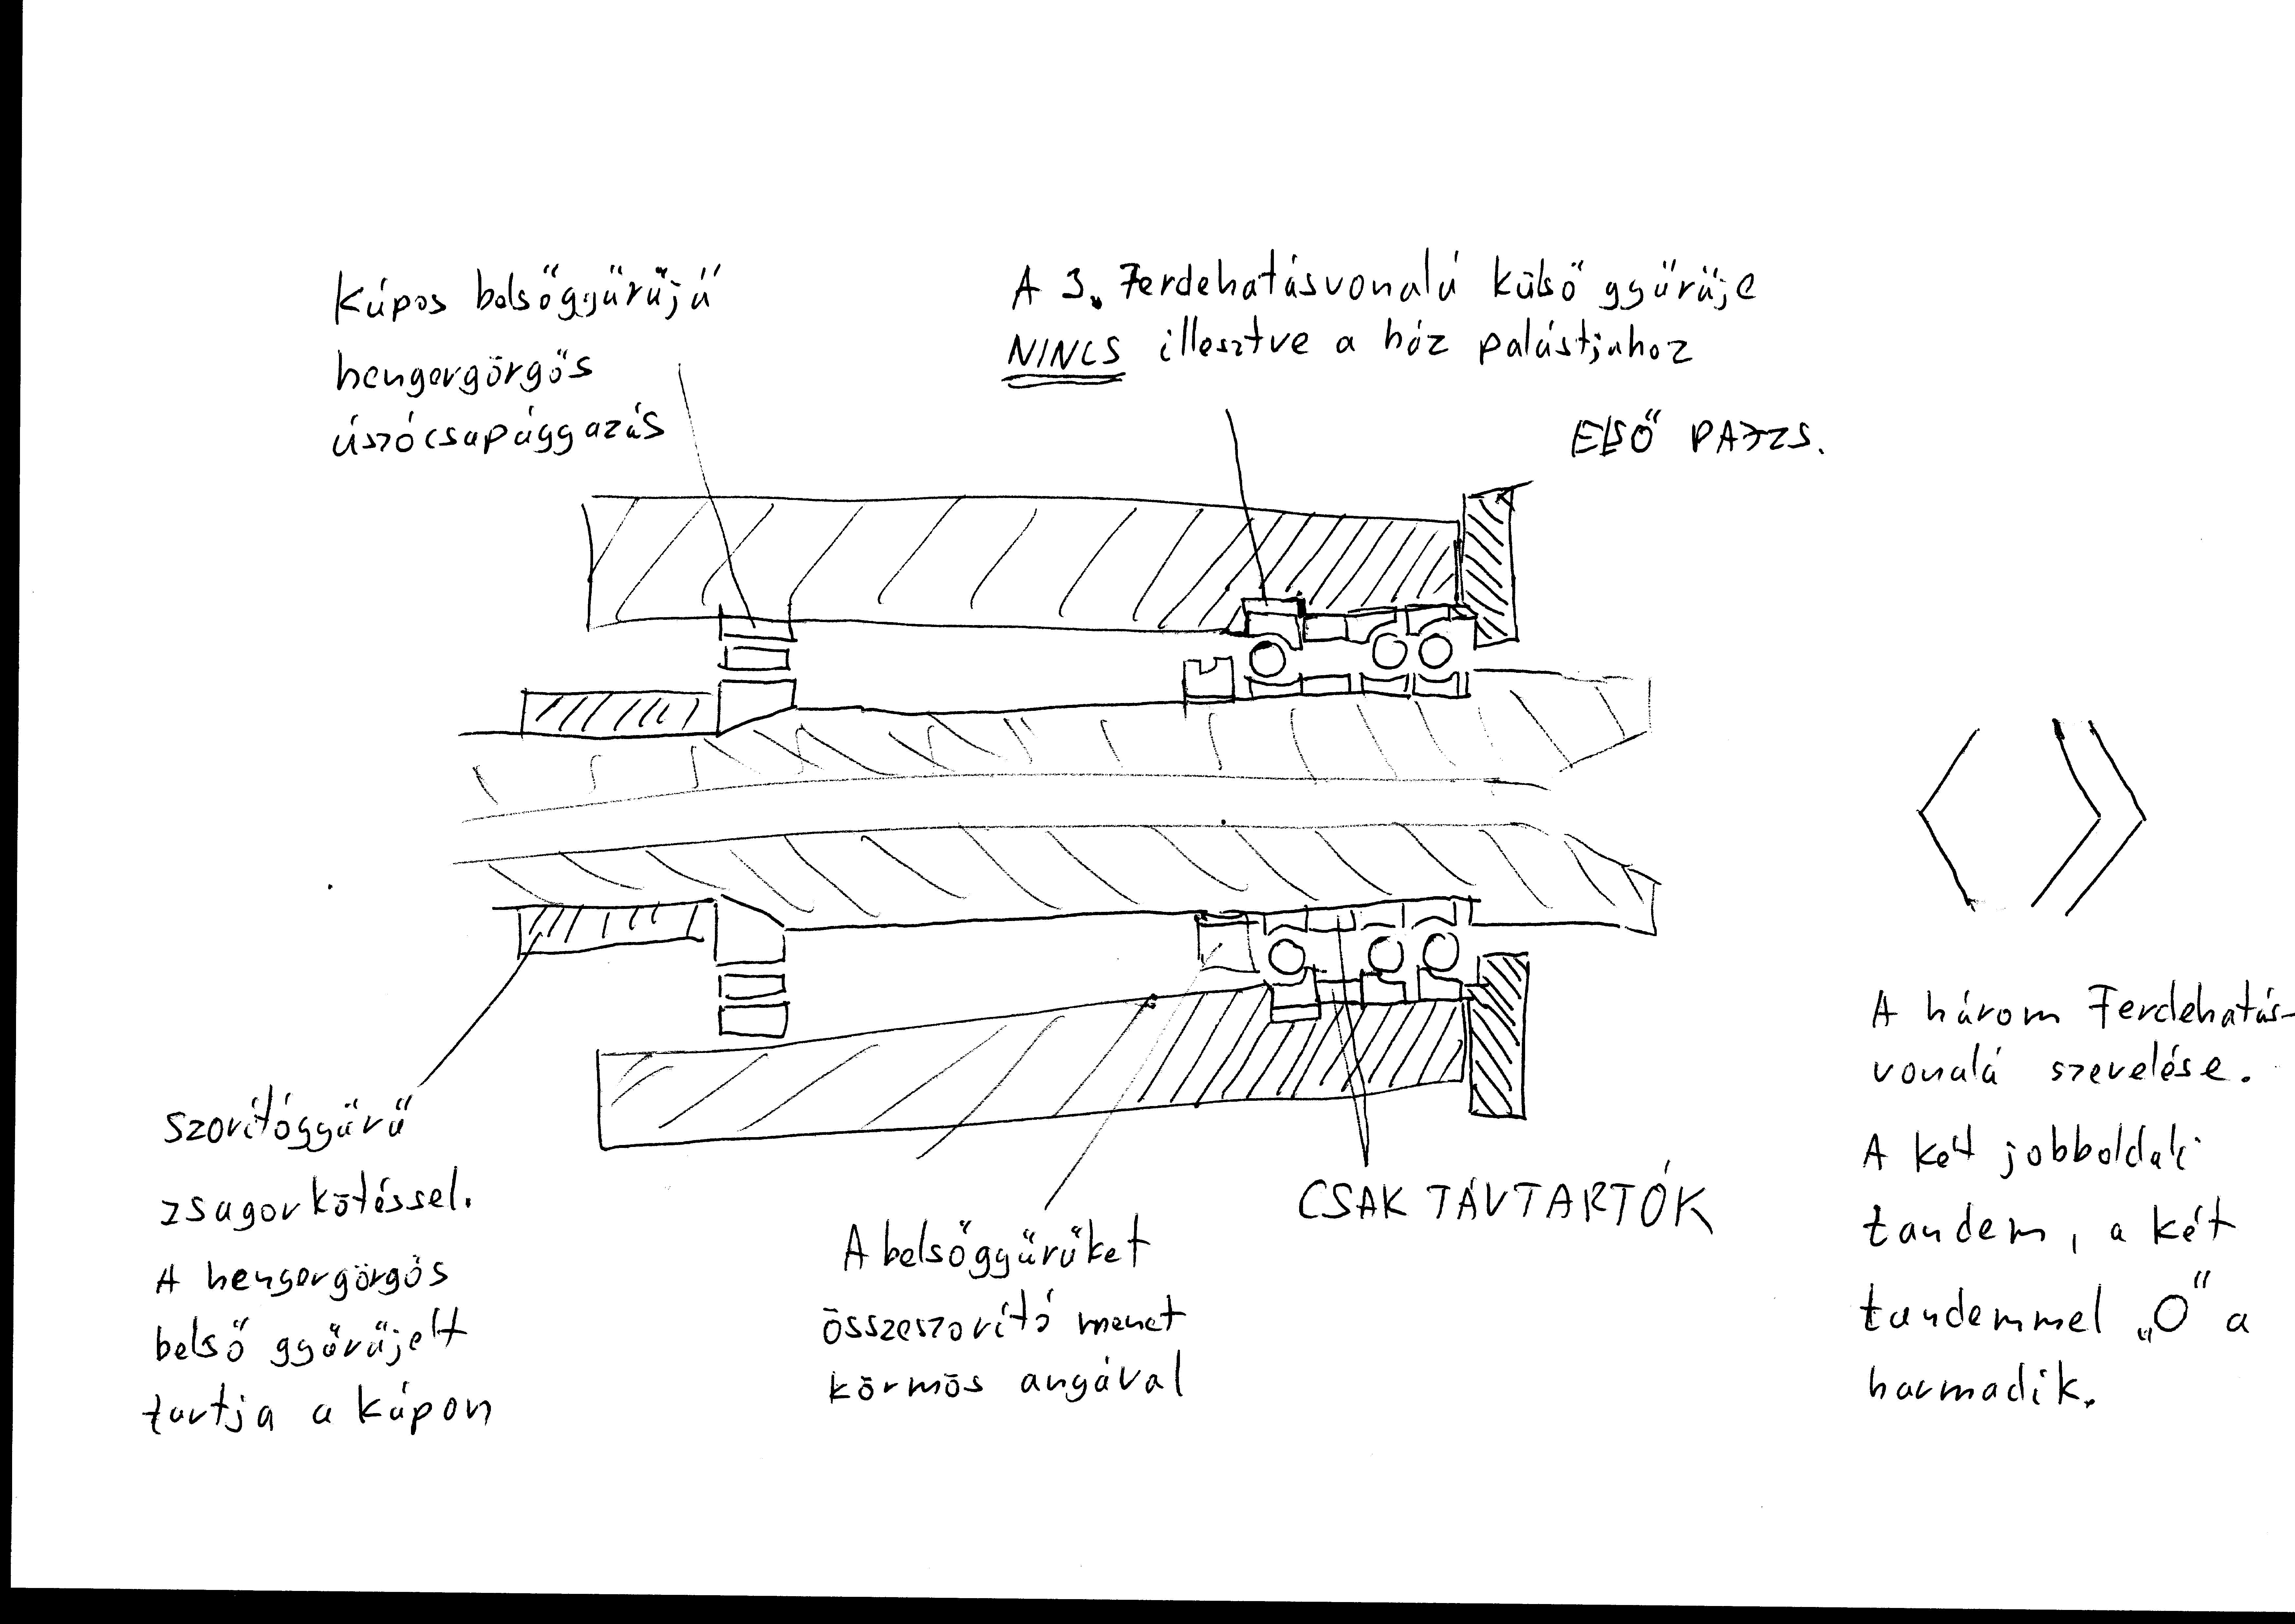 Kúpos belsőgyűrűjű
hengergörgős
úszócsapággazás
A 3. Ferdehatásvonalú külső gyűrűje
NINCS illesztve a ház palástjához
ELSŐ PAJZS.
szorítógyűrű
zsugorkötéssel.
A hengergörgős
belső gyűrűjelt
tartja a kúpon
A belsőgyűrűket
összeszorító menet
körmös anyával
CSAK TÁVTARTÓK
A három Ferdehatás-
vonalú szerelése.
A két jobboldali
tandem, a két
tandemmel „O" a
harmadik.